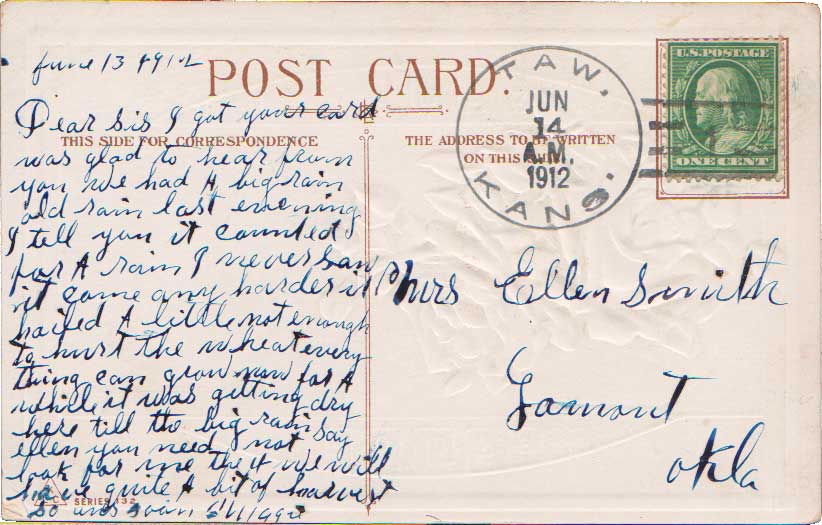 June 13 1912
POST CARD.
Dear sis I got your card
THIS SIDE FOR CORRESPONDENCE
was glad to hear from
you we had A big rain
old rain last evening
I tell you it counted
for A rain I never saw
it come any harder it
hailed A little not enough
to hurt the wheat every
thing can grow now for A
while it was getting dry
here till the big rain say
ellen you need not
look for me the we will
have quite A bit of harvest
SERIES 132
so ans soon Maggie
THE ADDRESS TO BE WRITTEN
ON THIS
TAW.
JUN
14
A.M.
1912
KANS.
U.S. POSTAGE
ONE CENT
Mrs Ellen Smith
Lamont
Okla